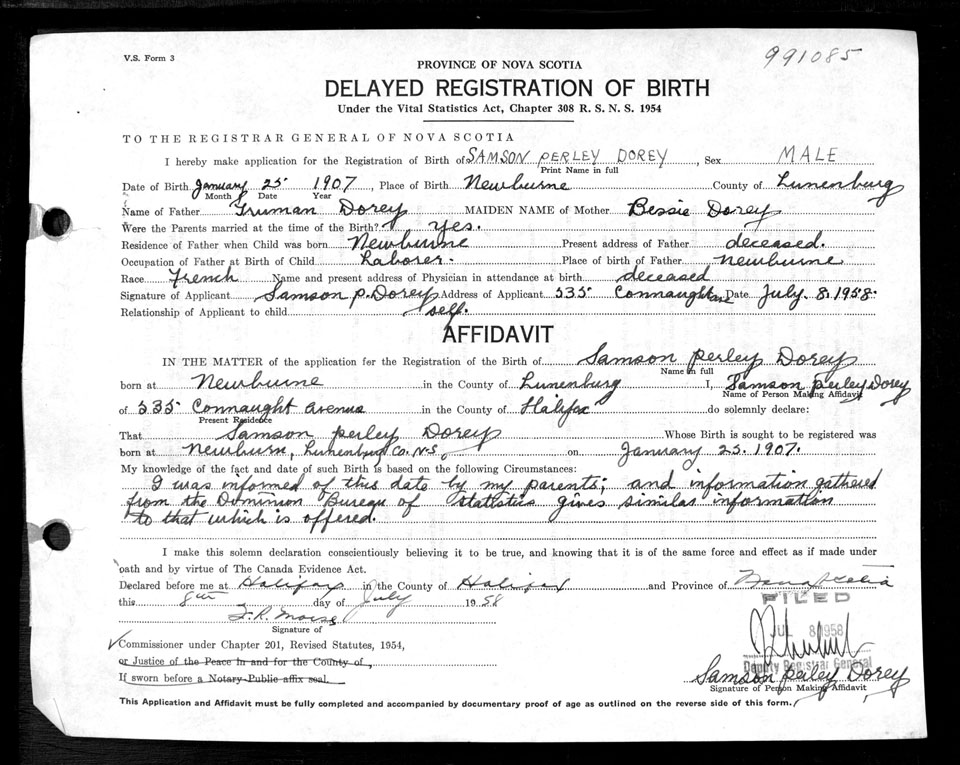 V.S. Form 3
991085
PROVINCE OF NOVA SCOTIA
DELAYED REGISTRATION OF BIRTH
Under the Vital Statistics Act, Chapter 308 R. S. N. S. 1954
TO THE REGISTRAR GENERAL OF NOVA SCOTIA
I hereby make application for the Registration of Birth of SAMSON PERLEY DOREY, Sex MALE
Print Name in full
Date of Birth January 25 1907, Place of Birth Newburne County of Lunenburg
Month Date Year
Name of Father Truman Dorey MAIDEN NAME of Mother Bessie Dorey
Were the Parents married at the time of the Birth? Yes.
Residence of Father when Child was born Newburne Present address of Father deceased.
Occupation of Father at Birth of Child Laborer. Place of birth of Father Newburne
Race French Name and present address of Physician in attendance at birth deceased
Signature of Applicant Samson P. Dorey Address of Applicant 535 Connaught Date July 8, 1958
Relationship of Applicant to child self.
AFFIDAVIT
IN THE MATTER of the application for the Registration of the Birth of Samson Perley Dorey
Name in full
born at Newburne in the County of Lunenburg I, Samson Perley Dorey
Name of Person Making Affidavit
of 535 Connaught Avenue in the County of Halifax do solemnly declare:
Present Residence
That Samson Perley Dorey Whose Birth is sought to be registered was
born at Newburn, Lunenburg Co. N.S. on January 25. 1907.
My knowledge of the fact and date of such Birth is based on the following Circumstances:
I was informed of this date by my parents; and information gathered
from the Dominion Bureau of Statistics gives similar information
to that which is offered.
I make this solemn declaration conscientiously believing it to be true, and knowing that it is of the same force and effect as if made under
oath and by virtue of The Canada Evidence Act.
Declared before me at Halifax in the County of Halifax and Province of Nova Scotia
this 8th day of July 1958
FILED
JUL 8 1958
Deputy Registrar General
Signature of
Commissioner under Chapter 201, Revised Statutes, 1954,
or Justice of the Peace in and for the County of
If sworn before a Notary Public affix seal.
Samson Perley Dorey
Signature of Person Making Affidavit
This Application and Affidavit must be fully completed and accompanied by documentary proof of age as outlined on the reverse side of this form.